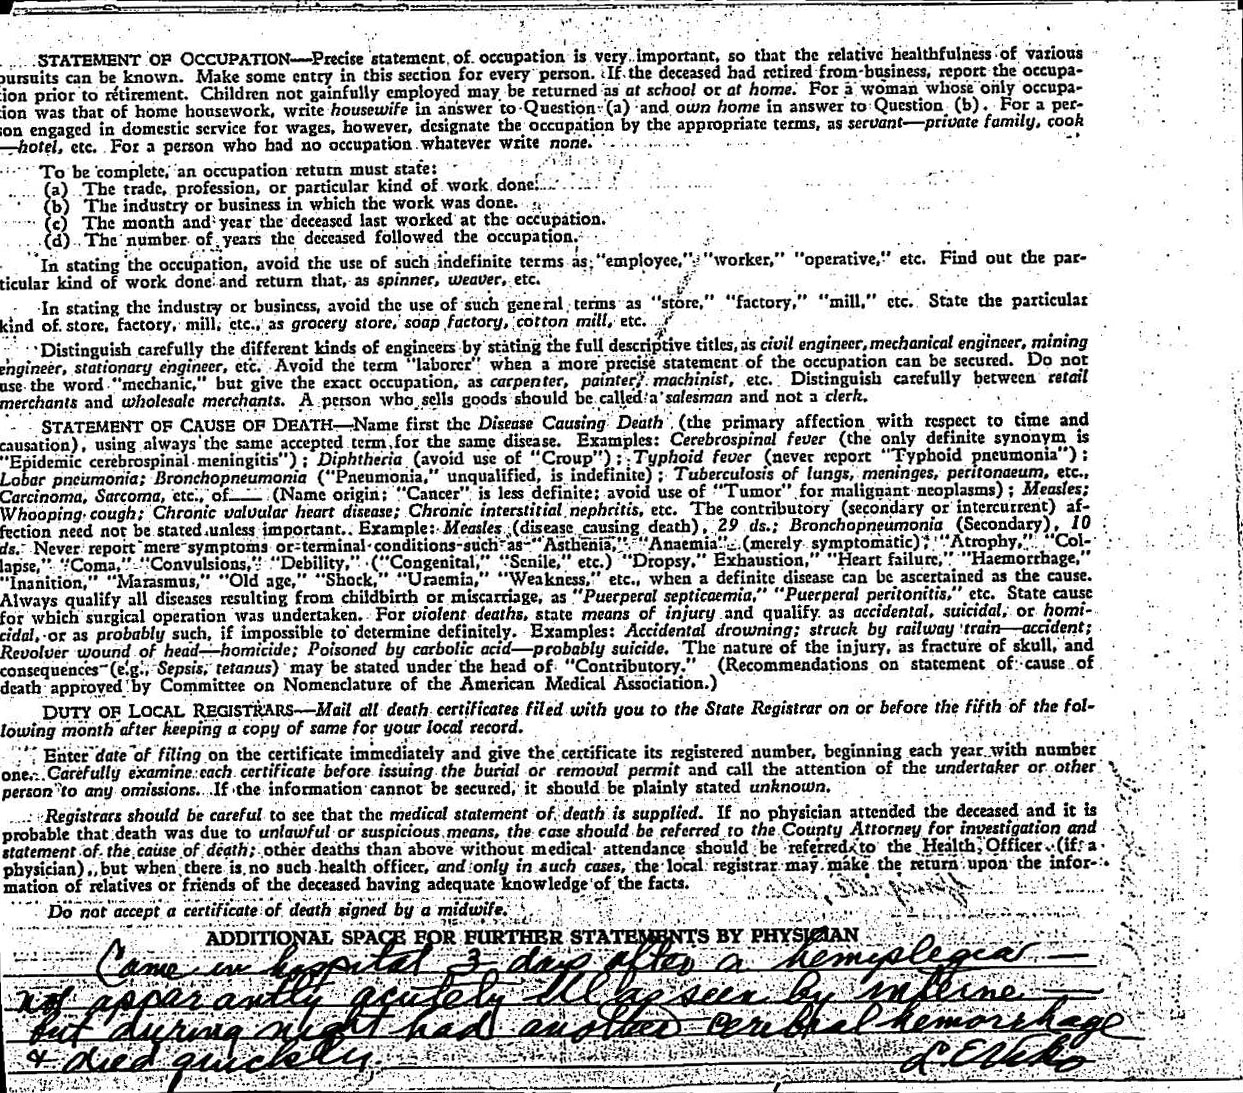 STATEMENT OF OCCUPATION—Precise statement of occupation is very important, so that the relative healthfulness of various
pursuits can be known. Make some entry in this section for every person. If the deceased had retired from business, report the occupa-
tion prior to retirement. Children not gainfully employed may be returned as at school or at home. For a woman whose only occupa-
tion was that of home housework, write housewife in answer to Question (a) and own home in answer to Question (b). For a per-
son engaged in domestic service for wages, however, designate the occupation by the appropriate terms, as servant—private family, cook
—hotel, etc. For a person who had no occupation whatever write none.
To be complete, an occupation return must state:
(a) The trade, profession, or particular kind of work done.
(b) The industry or business in which the work was done.
(c) The month and year the deceased last worked at the occupation.
(d) The number of years the deceased followed the occupation.
In stating the occupation, avoid the use of such indefinite terms as "employee," "worker," "operative," etc. Find out the par-
ticular kind of work done and return that, as spinner, weaver, etc.
In stating the industry or business, avoid the use of such general terms as "store," "factory," "mill," etc. State the particular
kind of store, factory, mill, etc., as grocery store, soap factory, cotton mill, etc.
Distinguish carefully the different kinds of engineers by stating the full descriptive titles, as civil engineer, mechanical engineer, mining
engineer, stationary engineer, etc. Avoid the term "laborer" when a more precise statement of the occupation can be secured. Do not
use the word "mechanic," but give the exact occupation, as carpenter, painter, machinist, etc. Distinguish carefully between retail
merchants and wholesale merchants. A person who sells goods should be called a salesman and not a clerk.
STATEMENT OF CAUSE OF DEATH—Name first the Disease Causing Death (the primary affection with respect to time and
causation), using always the same accepted term for the same disease. Examples: Cerebrospinal fever (the only definite synonym is
"Epidemic cerebrospinal meningitis"); Diphtheria (avoid use of "Croup"); Typhoid fever (never report "Typhoid pneumonia");
Lobar pneumonia; Bronchopneumonia ("Pneumonia," unqualified, is indefinite); Tuberculosis of lungs, meninges, peritonaeum, etc.,
Carcinoma, Sarcoma, etc., of____ (Name origin; "Cancer" is less definite; avoid use of "Tumor" for malignant neoplasms); Measles;
Whooping cough; Chronic valvular heart disease; Chronic interstitial nephritis, etc. The contributory (secondary or intercurrent) af-
fection need not be stated unless important. Example: Measles (disease causing death), 29 ds.; Bronchopneumonia (Secondary), 10
ds. Never report mere symptoms or terminal conditions such as "Asthenia," "Anaemia" (merely symptomatic); "Atrophy," "Col-
lapse," "Coma," "Convulsions," "Debility," ("Congenital," "Senile," etc.) "Dropsy," Exhaustion," "Heart failure," "Haemorrhage,"
"Inanition," "Marasmus," "Old age," "Shock," "Uraemia," "Weakness," etc., when a definite disease can be ascertained as the cause.
Always qualify all diseases resulting from childbirth or miscarriage, as "Puerperal septicaemia," "Puerperal peritonitis," etc. State cause
for which surgical operation was undertaken. For violent deaths, state means of injury and qualify as accidental, suicidal, or homi-
cidal, or as probably such, if impossible to determine definitely. Examples: Accidental drowning; struck by railway train—accident;
Revolver wound of head—homicide; Poisoned by carbolic acid—probably suicide. The nature of the injury, as fracture of skull, and
consequences (e.g., Sepsis, tetanus) may be stated under the head of "Contributory." (Recommendations on statement of cause of
death approved by Committee on Nomenclature of the American Medical Association.)
DUTY OF LOCAL REGISTRARS—Mail all death certificates filed with you to the State Registrar on or before the fifth of the fol-
lowing month after keeping a copy of same for your local record.
Enter date of filing on the certificate immediately and give the certificate its registered number, beginning each year with number
one. Carefully examine each certificate before issuing the burial or removal permit and call the attention of the undertaker or other
person to any omissions. If the information cannot be secured, it should be plainly stated unknown.
Registrars should be careful to see that the medical statement of death is supplied. If no physician attended the deceased and it is
probable that death was due to unlawful or suspicious means, the case should be referred to the County Attorney for investigation and
statement of the cause of death; other deaths than above without medical attendance should be referred to the Health Officer (if a
physician), but when there is no such health officer, and only in such cases, the local registrar may make the return upon the infor-
mation of relatives or friends of the deceased having adequate knowledge of the facts.
Do not accept a certificate of death signed by a midwife.
ADDITIONAL SPACE FOR FURTHER STATEMENTS BY PHYSICIAN
Came in hospital 3 days after a hemiplegia —
not apparantly acutely ill as seen by interne —
but during night had another cerebral hemorrhage
& died quickly.